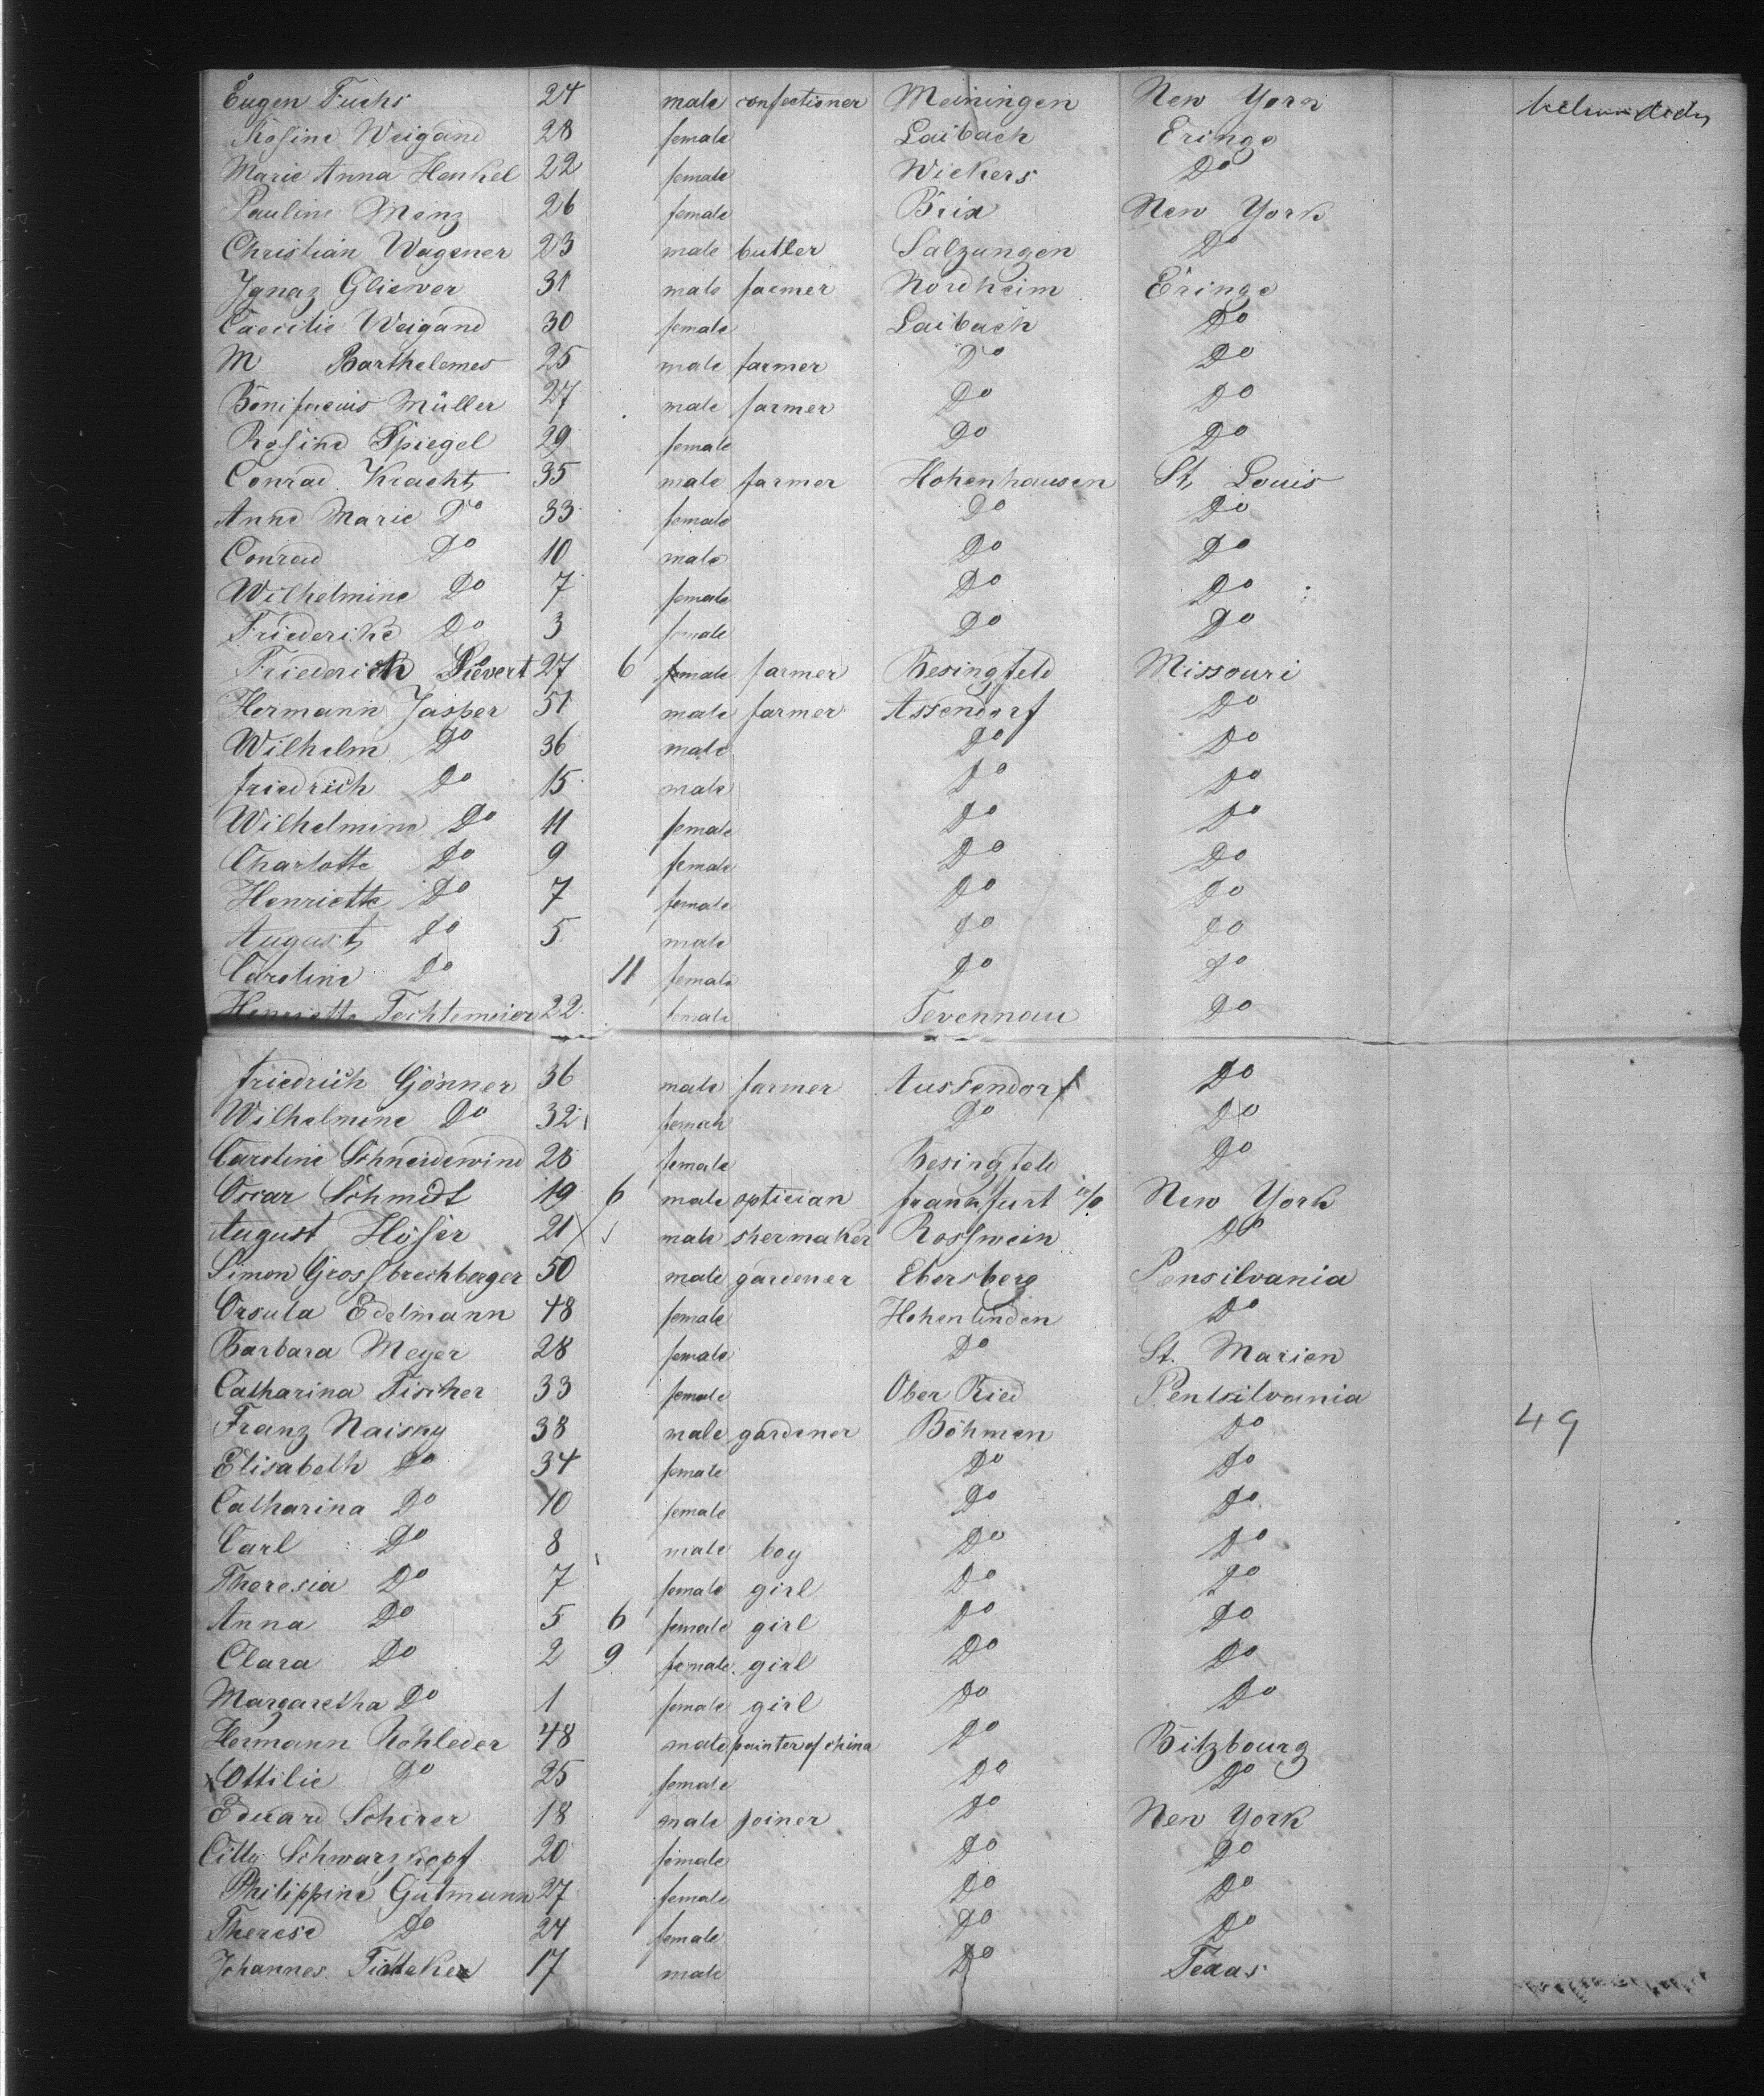 Eugen Fuchs 24 male confectioner Meiningen New York
Rosine Weigand 28 female Laibach Eringe
Marie Anna Henkel 22 female Wickers Do
Pauline Menz 26 female Brix New York
Christian Wagener 23 male butler Salzungen Do
Ignaz Gliewer 31 male farmer Nordheim Eringe
Caecilie Weigand 30 female Laibach Do
M Barthelemes 25 male farmer Do Do
Bonifacius Müller 27 male farmer Do Do
Rosine Spiegel 29 female Do Do
Conrad Kracht 35 male farmer Hohenhausen St. Louis
Anne Marie Do 33 female Do Do
Conrad Do 10 male Do Do
Wilhelmine Do 7 female Do Do
Friederike Do 3 female Do Do
Friederich Sievert 27 6 male farmer Besingfeld Missouri
Hermann Jasper 51 male farmer Assendorf Do
Wilhelm Do 36 male Do Do
friedrich Do 15 male Do Do
Wilhelmine Do 11 female Do Do
Charlotte Do 9 female Do Do
Henriette Do 7 female Do Do
August Do 5 male Do Do
Caroline Do 11 female Do Do
Henriette Fechtemeier 22 female Tevennau Do
friedrich Gönner 36 male farmer Aussendorf Do
Wilhelmine Do 32 female Do Do
Caroline Schneidewind 28 female Besingfeld Do
Oscar Schmidt 19 6 male optician frankfurt New York
August Höfer 21 male shermaker Rosswein Do
Simon Grossbrechberger 50 male gardener Ebersberg Pensilvania
Orsula Edelmann 48 female Hohenlinden Do
Barbara Meyer 28 female Do St. Marien
Catharina Fischer 33 female Ober Ried Pentsilvania
Franz Naisky 38 male gardener Böhmen Do 49
Elisabeth Do 34 female Do Do
Catharina Do 10 female Do Do
Carl Do 8 male boy Do Do
Theresia Do 7 female girl Do Do
Anna Do 5 6 female girl Do Do
Clara Do 2 9 female girl Do Do
Margaretha Do 1 female girl Do Do
Hermann Kohleder 48 male painter of china Do Bitzbourg
Ottilie Do 25 female Do Do
Eduard Schirer 18 male joiner Do New York
Cilly Schwarzkopf 20 female Do Do
Philippine Gutmann 27 female Do Do
Therese Do 24 female Do Do
Johannes 17 male Do Texas